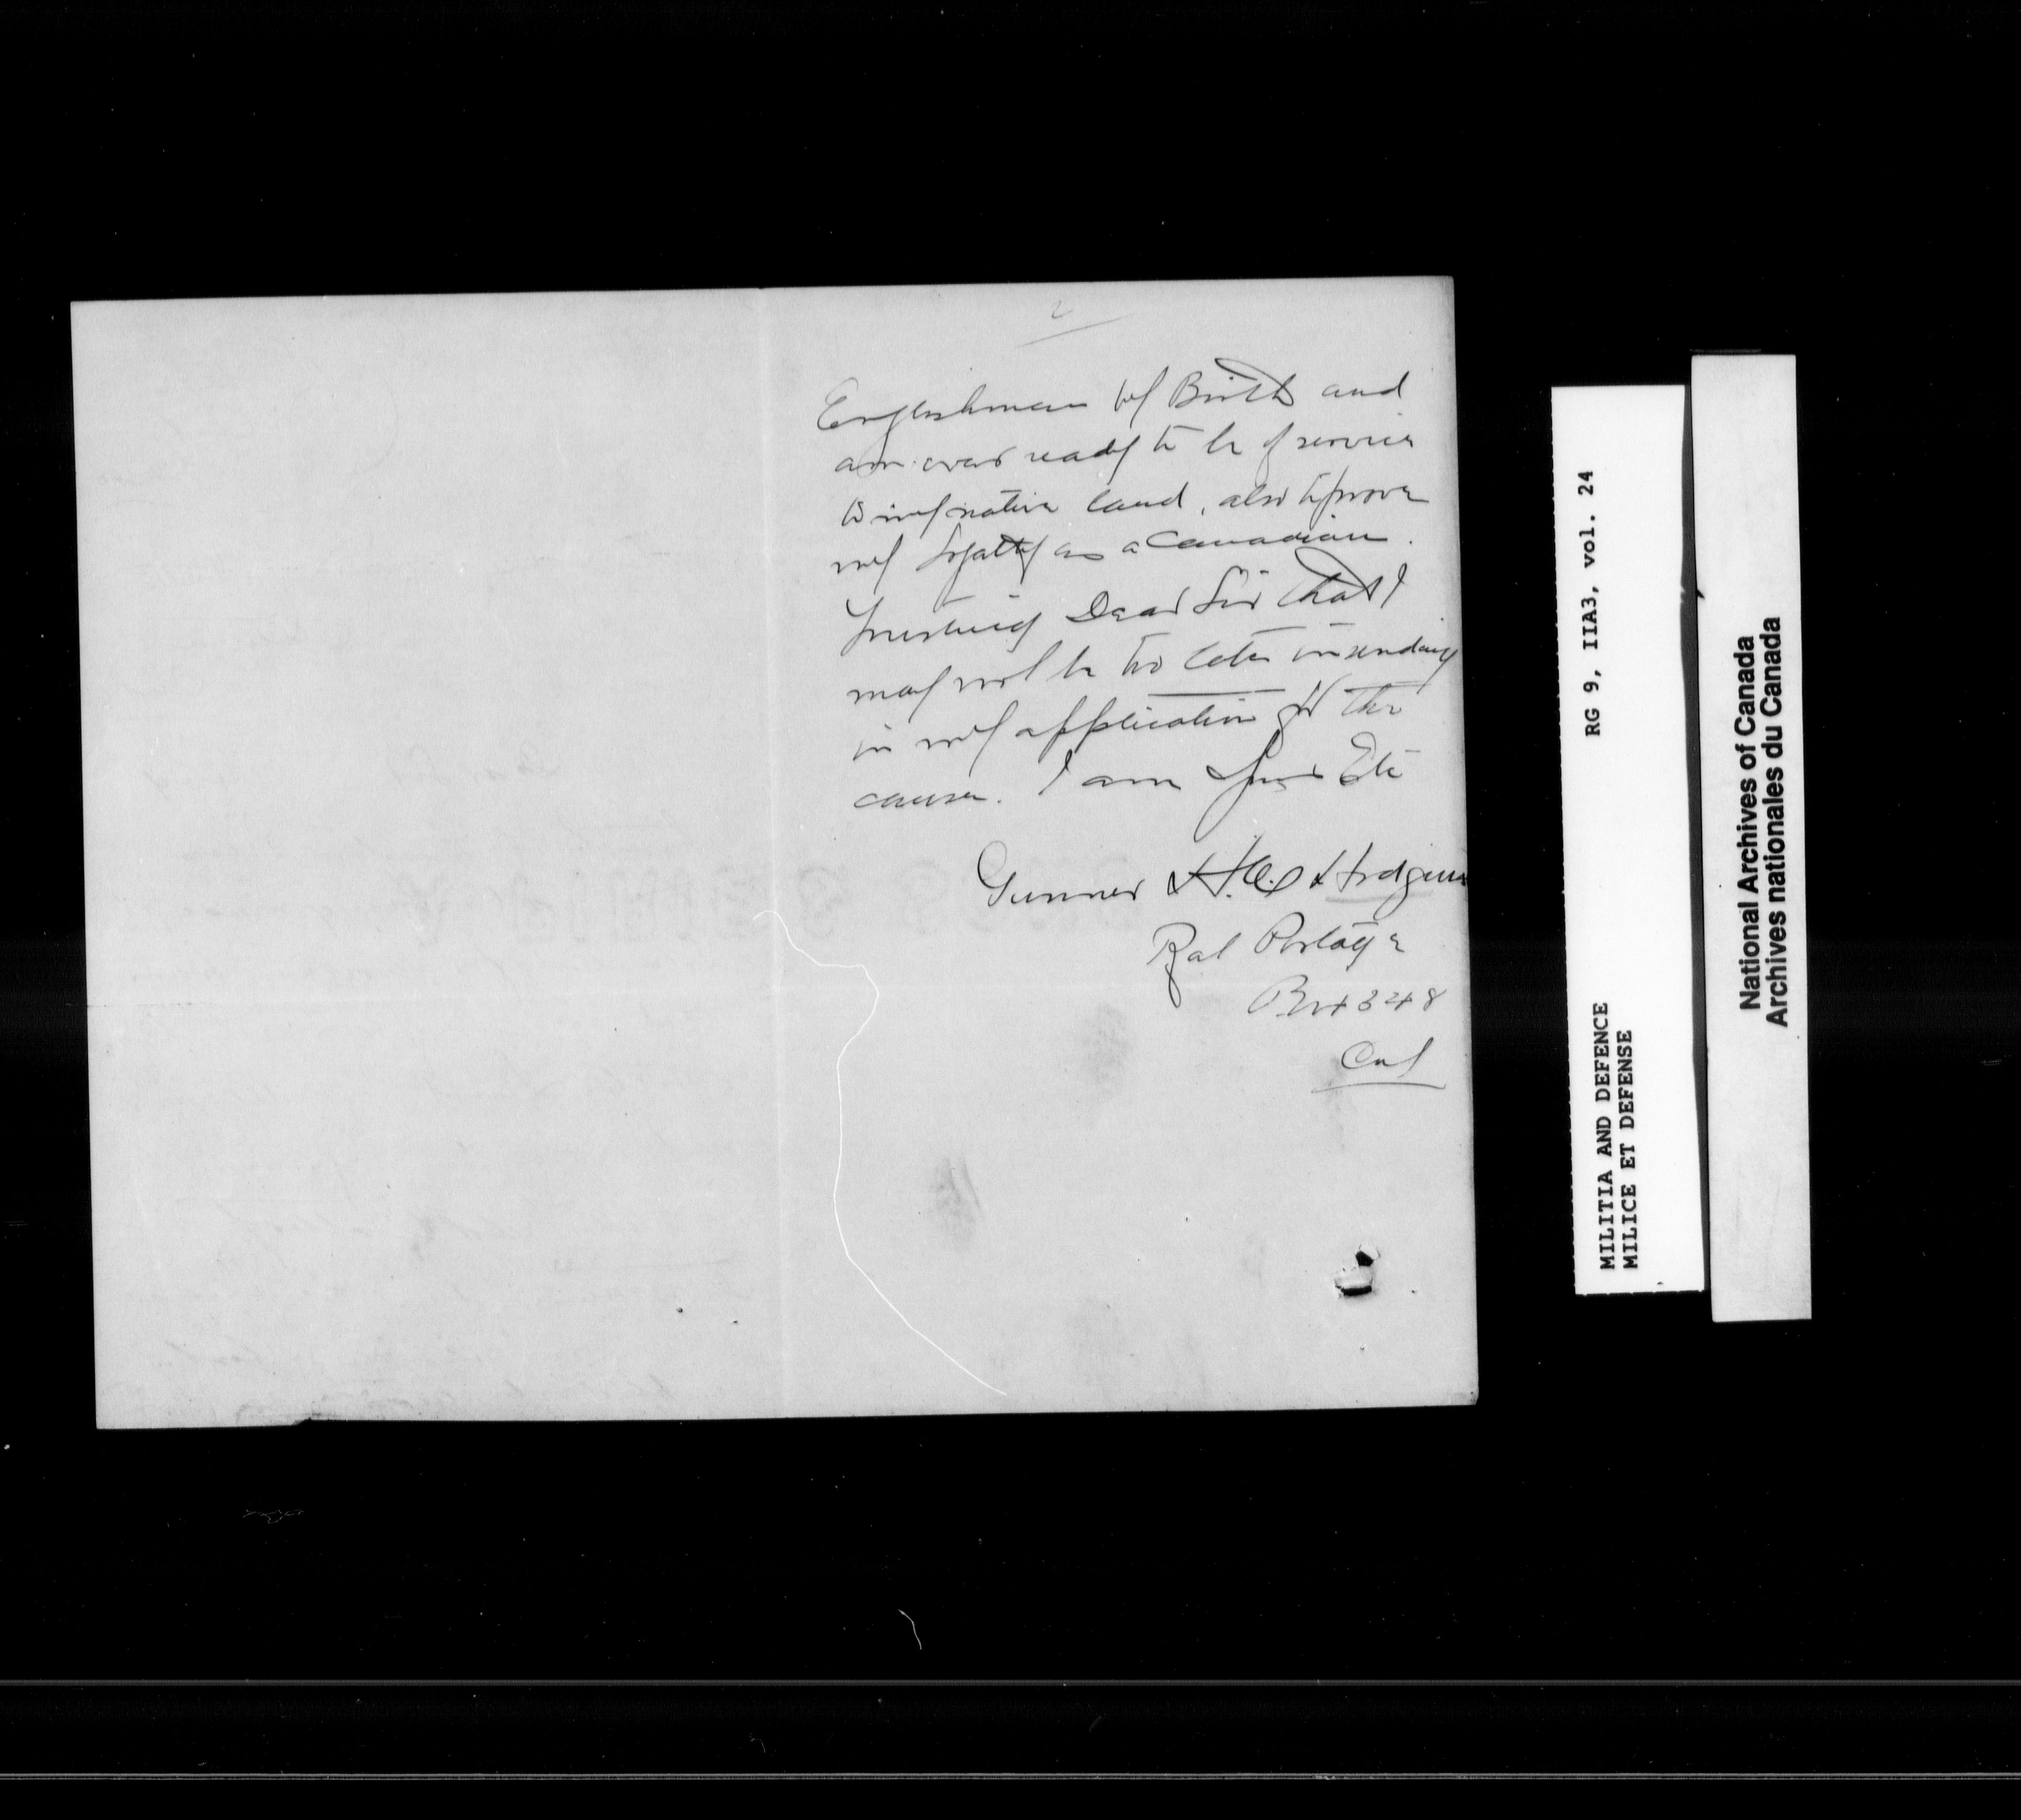 2
Englishman by Birth and
am ever ready to be of service
to my native land, also to prove
my loyalty as a Canadian.
Trusting Dear Sir that I
may not be too late in sending
in my application for the
cause. I am Yours Etc
Gunner H. Hodgins
Rat Portage
Box 348
Ont
RG 9, IIA3, vol. 24
MILITIA AND DEFENCE
MILICE ET DEFENSE
National Archives of Canada
Archives nationales du Canada